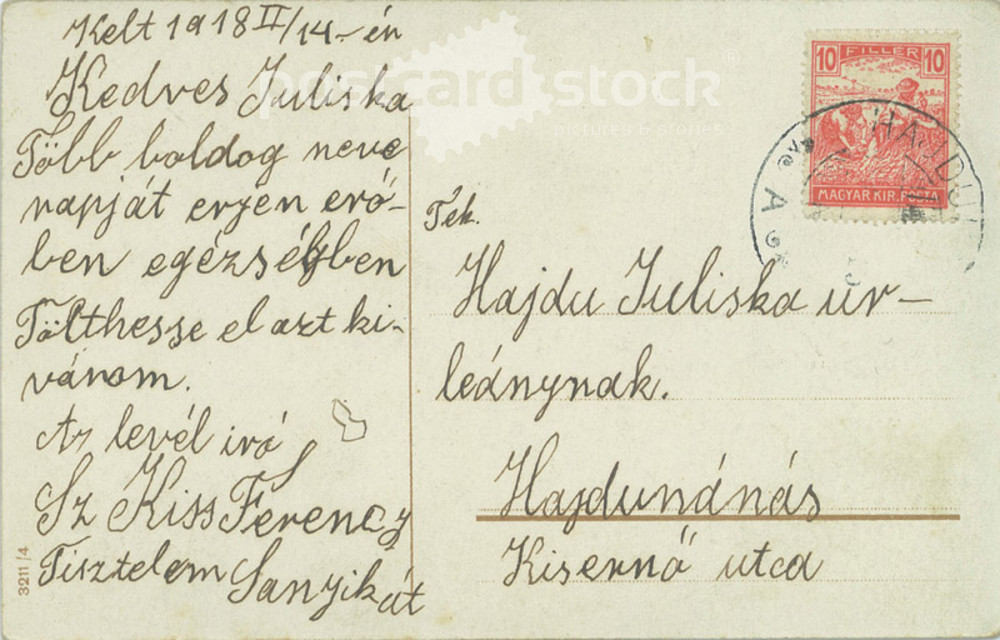 Kelt 1918 II/14-én
Kedves Juliska
Több boldog neve
napját érjen erő-
ben egézségben
Tölthesse el azt ki-
vánom.
Az levél iró
Sz Kiss Ferencz
Tisztelem Sanyikát
3211/4
postcard stock
pictures & stories
10 FILLER 10
MAGYAR KIR. POSTA
HAJDU
A
Ték.
Hajdu Juliska ur-
leánynak.
Hajdunánás
Kisernő utca